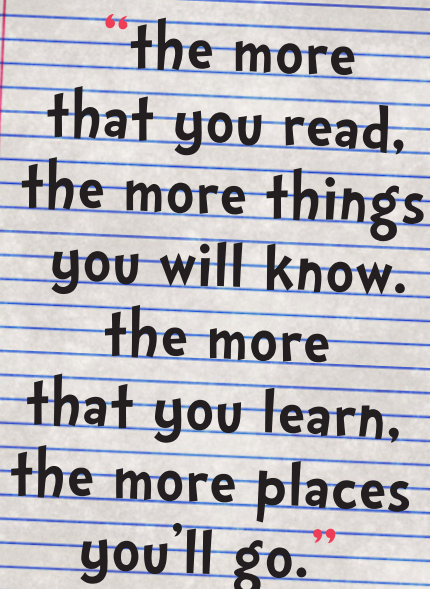 “the more
that you read,
the more things
you will know.
the more
that you learn,
the more places
you’ll go.”